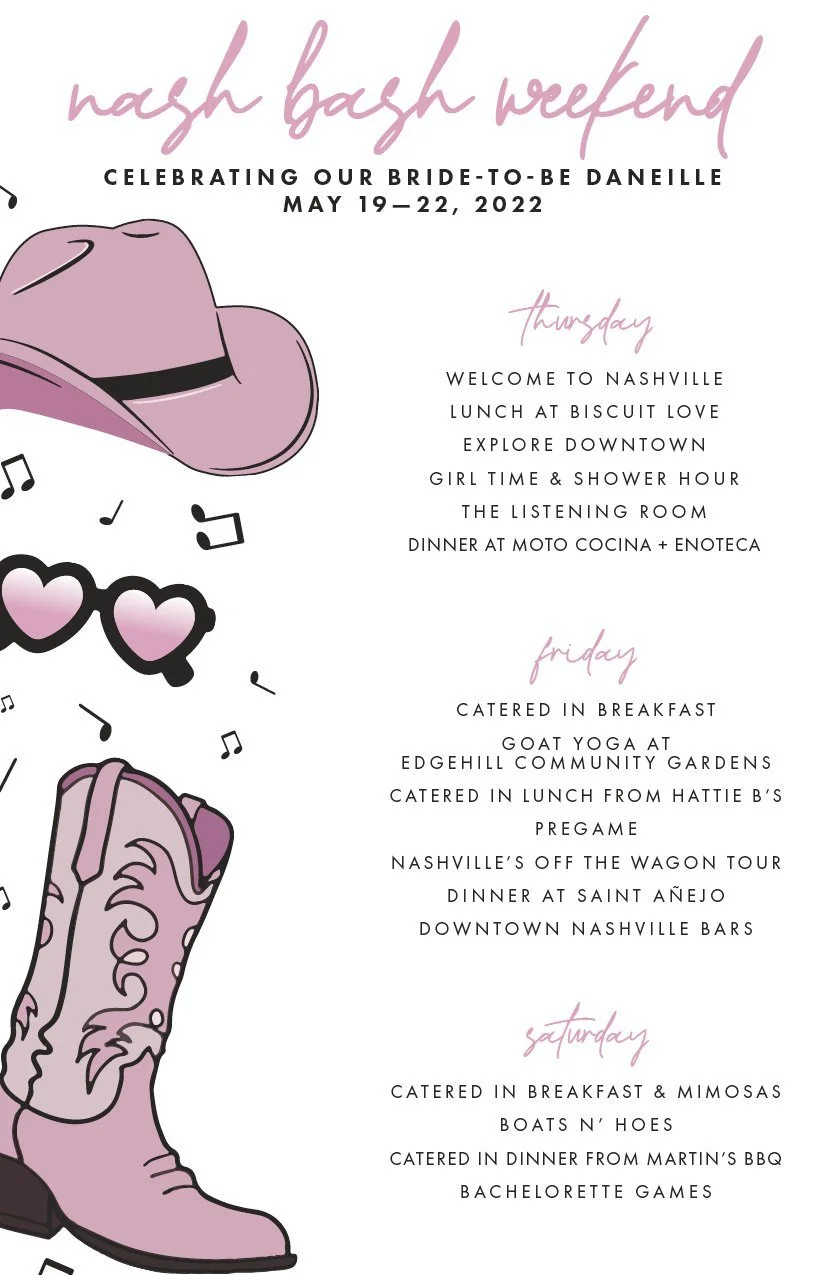 nash bash weekend
CELEBRATING OUR BRIDE-TO-BE DANEILLE
MAY 19—22, 2022
thursday
WELCOME TO NASHVILLE
LUNCH AT BISCUIT LOVE
EXPLORE DOWNTOWN
GIRL TIME & SHOWER HOUR
THE LISTENING ROOM
DINNER AT MOTO COCINA + ENOTECA
friday
CATERED IN BREAKFAST
GOAT YOGA AT
EDGEHILL COMMUNITY GARDENS
CATERED IN LUNCH FROM HATTIE B'S
PREGAME
NASHVILLE'S OFF THE WAGON TOUR
DINNER AT SAINT AÑEJO
DOWNTOWN NASHVILLE BARS
saturday
CATERED IN BREAKFAST & MIMOSAS
BOATS N' HOES
CATERED IN DINNER FROM MARTIN'S BBQ
BACHELORETTE GAMES